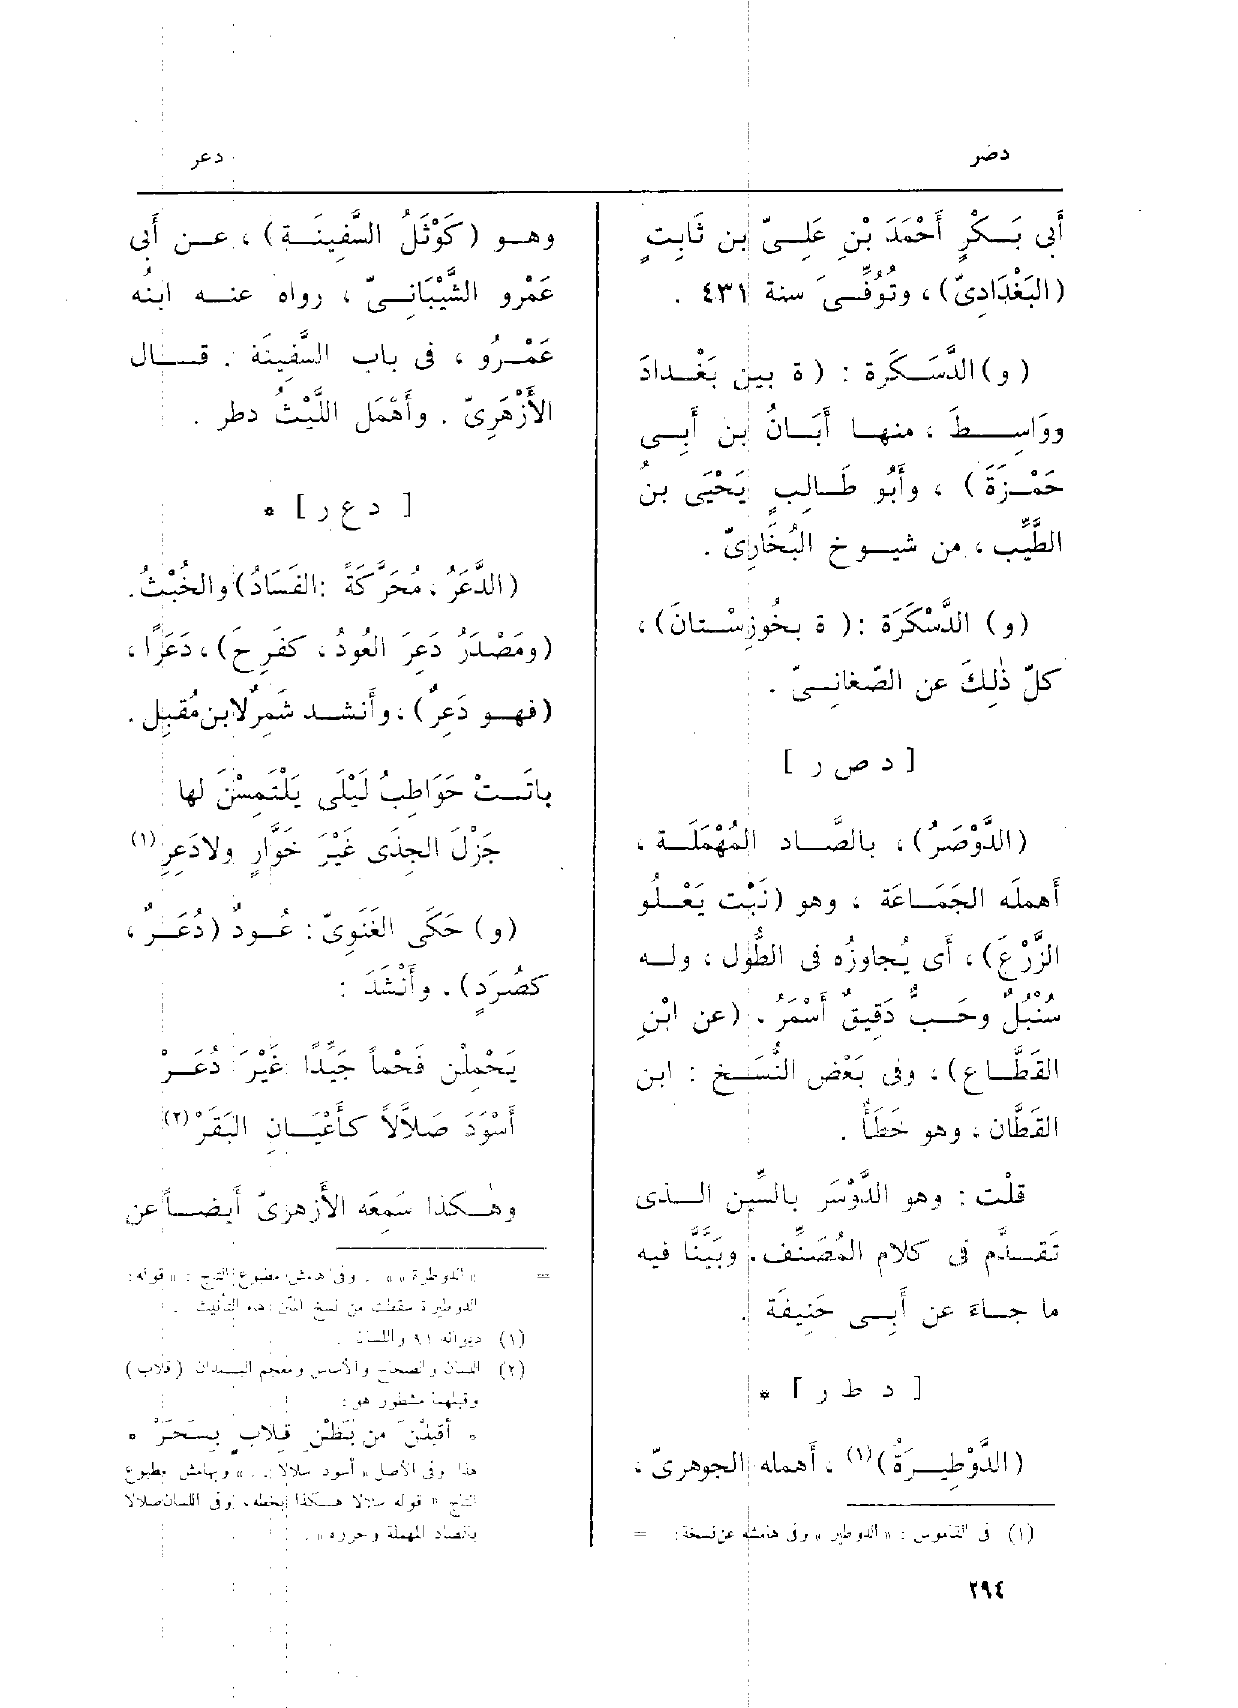 دضر
دعر
أبى بَــكْرٍ أَحْمَدَ بْنِ عَلِــىِّ بن ثَابِتٍ
(البَغْدَادِىِّ) ، وتُوُفِّــىَ سنة ٤٣١ .
( و ) الدَّسْــكَرة : ( ة بين بَغْــدادَ
ووَاسِــــطَ ، منهــا أَبَــانُ بن أَبِــى
حَمْــزَةَ ) ، وأَبُو طَــالِبٍ يَحْيَى بنُ
الطَّيِّب ، من شيــوخ البُخَارِىِّ .
( و ) الدَّسْكَرَة : ( ة بخُوزِسْــتانَ ) ،
كلّ ذٰلِكَ عن الصّغانِــىّ .
[ د ص ر ]
( الدَّوْصَرُ ) ، بالصَّــاد المُهْمَلَــة ،
أهمله الجَمَــاعَة ، وهو ( نَبْت يَعْــلُو
الزَّرْعَ ) ، أى يُجاوزُه فى الطُّول ، ولــه
سُنْبُلٌ وحَــبٌّ دَقِيقٌ أَسْمَرُ . ( عن ابْنِ
القَطَّــاع ) ، وفى بَعْض النُّسَــخ : ابن
القَطَّان ، وهو خَطَأٌ .
قلْت : وهو الدَّوْسَر بالسِّين الــذى
تَقــدَّم فى كلام المُصَنِّف . وبَيَّنَّا فيه
ما جــاءَ عن أَبِــى حَنِيفَة .
[ د ط ر ] *
( الدَّوْطِيــرَةُ ) (١) ، أهمله الجوهرىّ ،
(١) فى القاموس : « الدوطير » وفى هامشه عن نسخة : =
وهــو ( كَوْثَلُ السَّفِينَــة ) ، عــن أَبى
عَمْرو الشَّيْبَانِــىّ ، رواه عنــه ابنُه
عَمْــرُو ، فى باب السَّفِينَة . قــال
الأَزْهَرِىّ . وأَهْمَل اللَّيْثُ دطر .
[ د ع ر ] *
( الدَّعَرُ ، مُحَرَّكَةً : الفَسَادُ ) والخُبْثُ .
( ومَصْدَرُ دَعِرَ العُودُ ، كفَرِحَ ) ، دَعَرًا ،
( فهــو دَعِرٌ ) ، وأَنشــد شَمِرٌ لابن مُقبِل .
باتَــتْ حَوَاطِبُ لَيْلَى يَلْتَمِسْنَ لها
جَزْلَ الجِذَى غَيْرَ خَوَّارٍ ولا دَعِرِ (١)
( و ) حَكَى الغَنَوِىّ : عُــودٌ ( دُعَــرٌ ،
كصُرَدٍ ) . وأَنْشَدَ :
يَحْمِلْن فَحْماً جَيِّدًا غَيْرَ دُعَــرْ
أَسْوَدَ صَلاَّلاً كأَعْيَــانِ البَقَرْ (٢)
وهٰــكذا سَمِعَه الأَزهرىّ أيضــاً عن
= « الدوطرة » . وفى هامش مطبوع التاج : « قوله :
الدوطيرة سقطت من نسخ المتن : هاء التأنيث .
(١) ديوانه ٩١ واللسان .
(٢) اللسان والصحاح والأساس ومعجم البــدان ( قلاب )
وقبلهما مشطور هو :
* أقبلْنَ من بَطْنِ قِلابٍ بِسَحَرْ *
هذا وفى الأصل « أسود سلالا . . » وبهامش مطبوع
التاج « قوله سلالا هــكذا بخطه ، وفى اللسان صلالا
بالصاد المهملة وحرره » .
٢٩٤